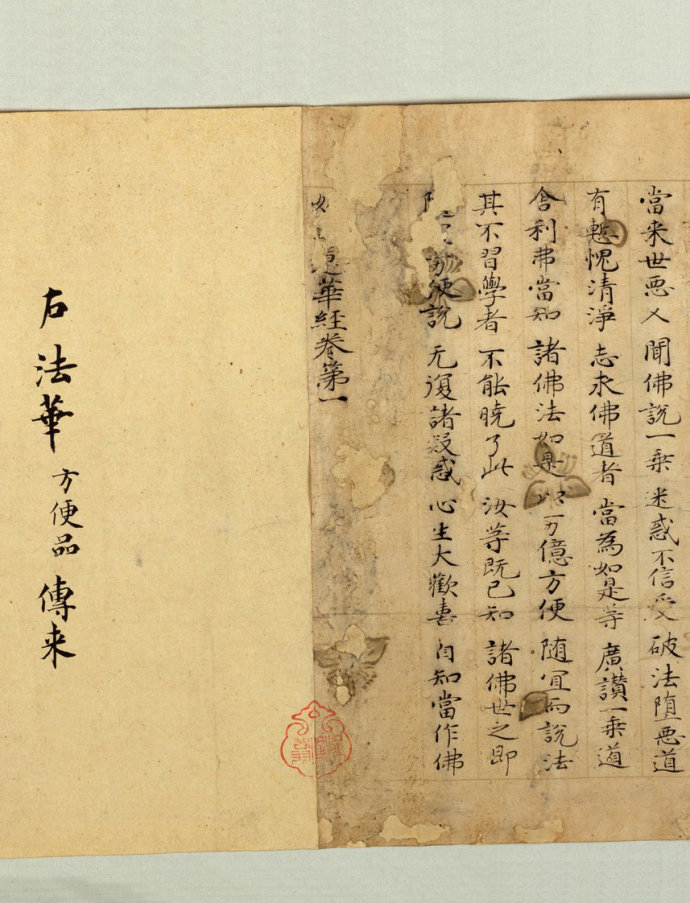 當来世悪人 聞佛説一乗 迷惑不信受 破法堕悪道
有慙愧清淨 志求佛道者 當為如是等 廣讃一乗道
舎利弗當知 諸佛法如是 以万億方便 随冝而説法
其不習學者 不能暁了此 汝等既已知 諸佛世之即
方便説 无復諸疑惑 心生大歡喜 自知當作佛
華経巻第一
右法華方便品傳来